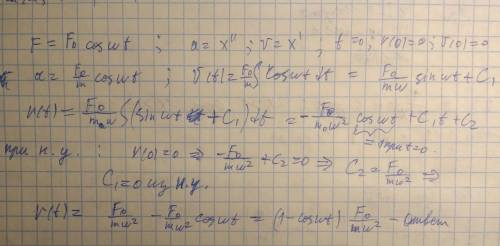 F = F₀ cos ωt ; a = x'' ; v = x' , t=0; r(0)=0; v(0)=0
a = F₀/m cos ωt ; v(t) = F₀/m ∫ cos ωt dt = F₀/mω sin ωt + C₁
r(t) = F₀/m₀ω ∫(sin ωt + C₁) dt = - F₀/m₀ω² cos ωt + C₁t + C₂
= 1 при t=0.
при н.у. : r(0)=0 ⇒ - F₀/mω² + C₂ = 0 ⇒ C₂ = F₀/mω² ⇒
C₁ = 0 из н.у.
r(t) = F₀/mω² - F₀/mω² cos ωt = (1 - cos ωt) F₀/mω² - ответ